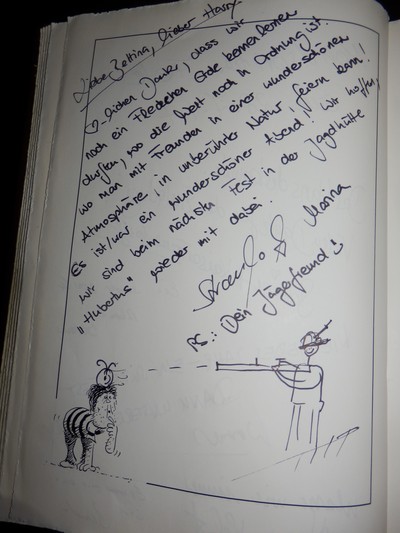 Liebe Bettina, lieber Harry,
♡-lichen Dank, dass wir
noch ein Fleckchen Erde kennenlernen
durften, wo die Welt noch in Ordnung ist,
wo man mit Freunden in einer wunderschönen
Atmosphäre, in unberührter Natur, feiern kann!
Es ist/war ein wunderschöner Abend! Wir hoffen,
wir sind beim nächsten Fest in der Jagdhütte
"Hubertus" wieder mit dabei.
& Marina
PS.: Dein Jägerfreund